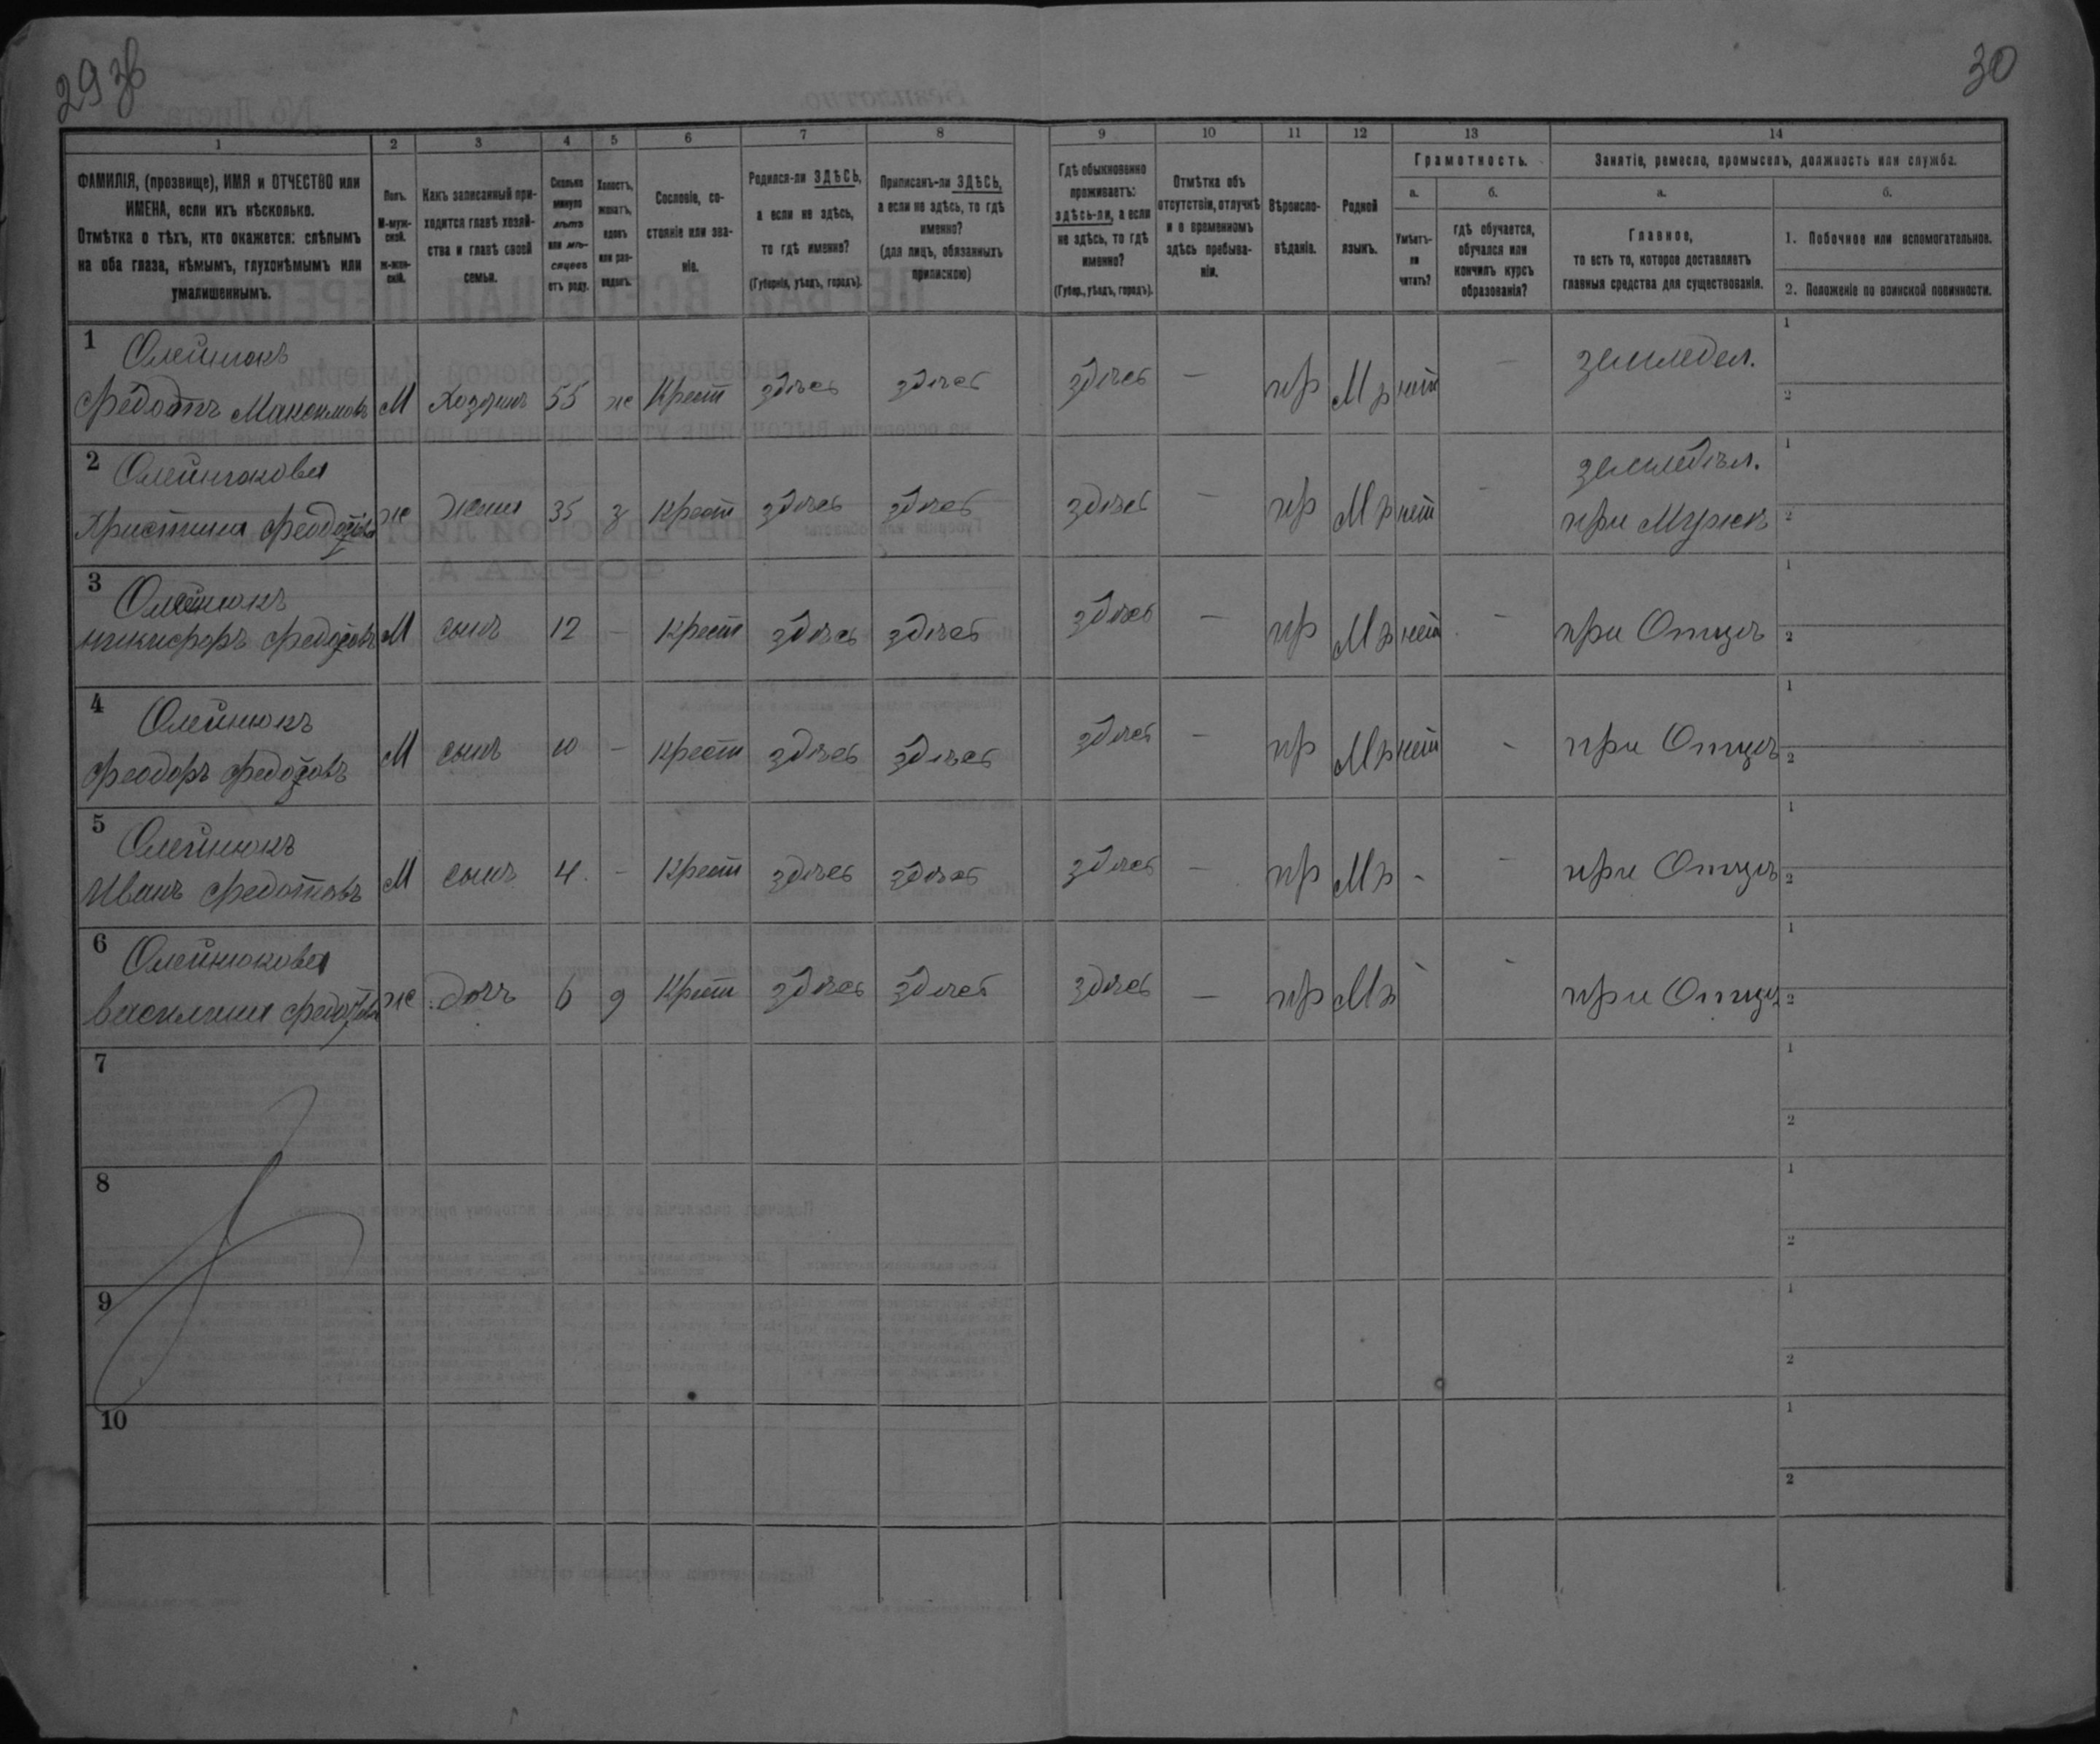 29 об
30
1 2 3 4 5 6 7 8 9 10 11 12 13 14
ФАМИЛІЯ, (прозвище), ИМЯ и ОТЧЕСТВО или
ИМЕНА, если ихъ нѣсколько.
Отмѣтка о тѣхъ, кто окажется: слѣпымъ
на оба глаза, нѣмымъ, глухонѣмымъ или
умалишеннымъ.
Полъ.
М-муж-
ской.
ж-жен-
скій.
Какъ записанный при-
ходится главѣ хозяй-
ства и главѣ своей
семьи.
Сколько
минуло
лѣтъ
или мѣ-
сяцевъ
отъ роду.
Холостъ,
женатъ,
вдовъ
или раз-
веденъ.
Сословіе, со-
стояніе или зва-
ніе.
Родился-ли ЗДѢСЬ,
а если не здѣсь,
то гдѣ именно?
(Губернія, уѣздъ, городъ).
Приписанъ-ли ЗДѢСЬ,
а если не здѣсь, то гдѣ
именно?
(для лицъ, обязанныхъ
припискою)
Гдѣ обыкновенно
проживаетъ:
здѣсь-ли, а если
не здѣсь, то гдѣ
именно?
(Губер., уѣздъ, городъ).
Отмѣтка объ
отсутствіи, отлучкѣ
и о временномъ
здѣсь пребыва-
ніи.
Вѣроиспо-
вѣданіе.
Родной
языкъ.
Грамотность.
а.
Умѣетъ-
ли
читать?
б.
гдѣ обучается,
обучался или
кончилъ курсъ
образованія?
Занятіе, ремесло, промыселъ, должность или служба.
а.
Главное,
то есть то, которое доставляетъ
главныя средства для существованія.
б.
1. Побочное или вспомогательное.
2. Положеніе по воинской повинности.
1 Олейнюкъ земледел. 1
Федотъ Максимовъ М Хозяинъ 55 ж Крест здѣсь здѣсь здѣсь — пр Мр нет — 2
2 Олейнюкова земледѣл. 1
Христина Феодотова ж жена 35 з Крест здѣсь здѣсь здѣсь — пр Мр нет - при Мужѣ 2
3 Олейнюкъ 1
Никифоръ Федотовъ М сынъ 12 — Крест здѣсь здѣсь здѣсь — пр Мр нет - при Отцѣ 2
4 Олейнюкъ 1
Феодоръ Федотовъ М сынъ 10 — Крест здѣсь здѣсь здѣсь — пр Мр нет - при Отцѣ 2
5 Олейнюкъ 1
Иванъ Федотовъ М сынъ 4 - Крест здѣсь здѣсь здѣсь — пр Мр - - при Отцѣ 2
6 Олейнюкова 1
Василина Федотова ж дочъ 6 д Крест здѣсь здѣсь здѣсь — пр Мр - - при Отцѣ 2
7 1
2
8 1
2
9 1
2
10 1
2